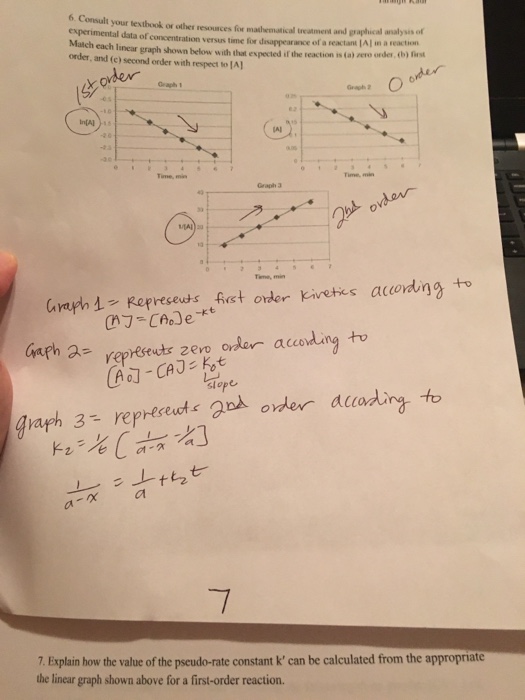 6. Consult your textbook or other resources for mathematical treatment and graphical analysis of
experimental data of concentration versus time for disappearance of a reactant [A] in a reaction
Match each linear graph shown below with that expected if the reaction is (a) zero order, (b) first
order, and (c) second order with respect to [A]
1st order
Graph 1
ln[A]
0 1 2 3 4 5 6 7
Time, min
0 order
Graph 2
[A]
Time, min
2nd order
Graph 3
1/[A]
0 1 2 3 4 5 6 7
Time, min
Graph 1 = Represents first order kinetics according to
[A] = [A₀]e^-kt
Graph 2 = represents zero order according to
[A₀] - [A] = K₀t
slope
graph 3 = represents 2nd order according to
K₂ = 1/t [1/a-x - 1/a]
1/a-x = 1/a + k₂t
7
7. Explain how the value of the pseudo-rate constant k' can be calculated from the appropriate
the linear graph shown above for a first-order reaction.